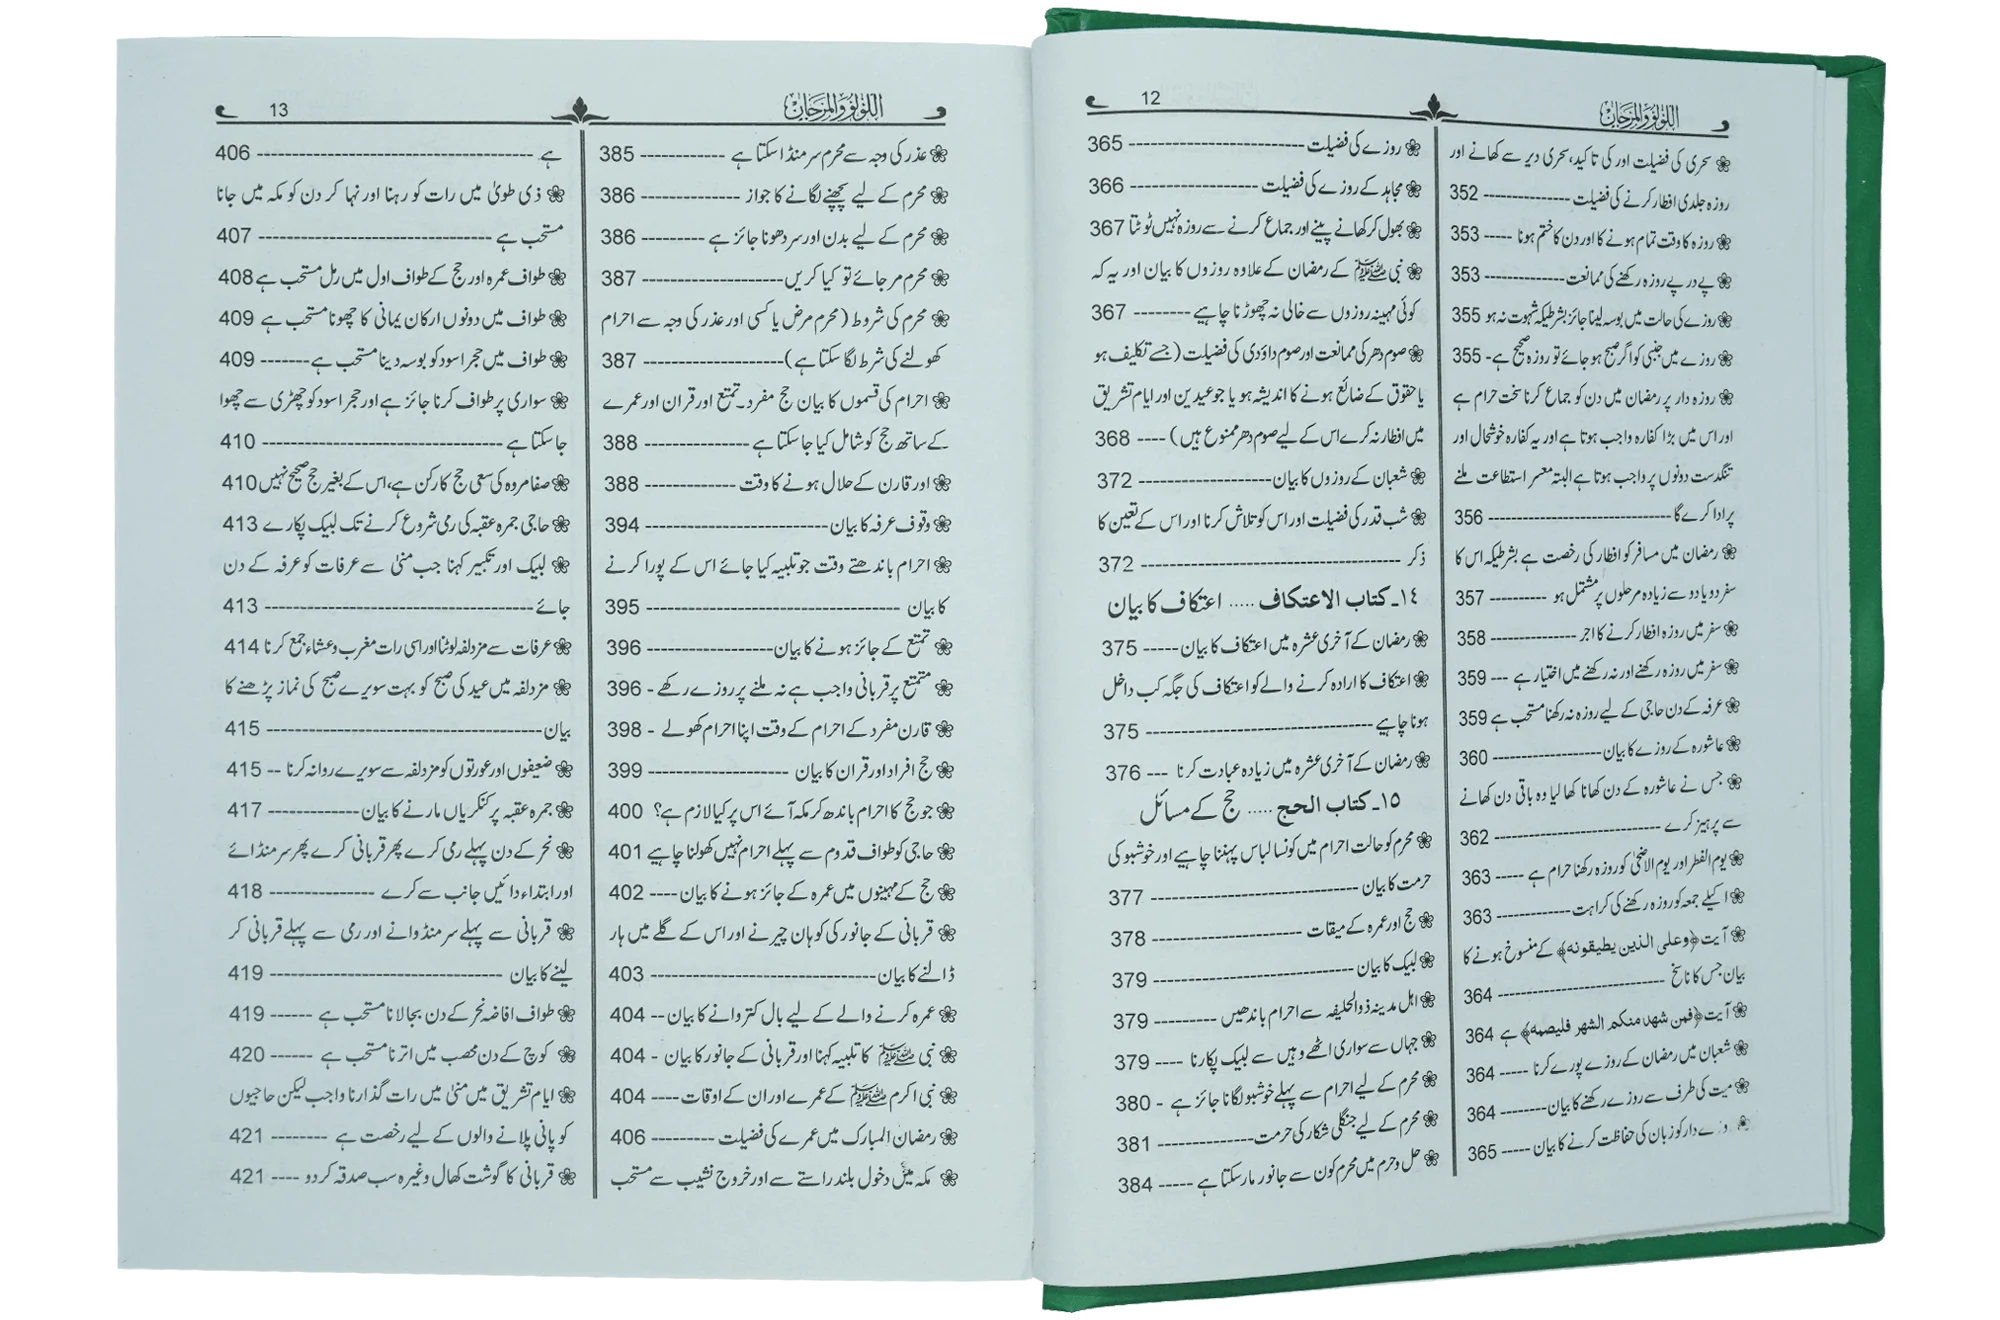 اللؤلؤ والمرجان 12
❀ سحری کی فضیلت اور کی تاکید، سحری دیر سے کھانے اور
روزہ جلدی افطار کرنے کی فضیلت -------------- 352
❀ روزہ کا وقت تمام ہونے کا اور دن کا ختم ہونا ----- 353
❀ پے در پے روزہ رکھنے کی ممانعت -------------- 353
❀ روزے کی حالت میں بوسہ لینا جائز بشرطیکہ شہوت نہ ہو 355
❀ روزے میں جنبی کو اگر صبح ہو جائے تو روزہ صحیح ہے - 355
❀ روزہ دار پر رمضان میں دن کو جماع کرنا سخت حرام ہے
اور اس میں بڑا کفارہ واجب ہوتا ہے اور یہ کفارہ خوشحال اور
تنگدست دونوں پر واجب ہوتا ہے البتہ معسر استطاعت ملنے
پر ادا کرے گا ------------------------------ 356
❀ رمضان میں مسافر کو افطار کی رخصت ہے بشرطیکہ اس کا
سفر دو یا دو سے زیادہ مرحلوں پر مشتمل ہو ---------- 357
❀ سفر میں روزہ افطار کرنے کا اجر --------------- 358
❀ سفر میں روزہ رکھنے اور نہ رکھنے میں اختیار ہے --- 359
❀ عرفہ کے دن حاجی کے لیے روزہ نہ رکھنا مستحب ہے 359
❀ عاشورہ کے روزے کا بیان ------------------- 360
❀ جس نے عاشورہ کے دن کھانا کھا لیا وہ باقی دن کھانے
سے پرہیز کرے ---------------------------- 362
❀ یوم الفطر اور یوم الاضحیٰ کو روزہ رکھنا حرام ہے ----- 363
❀ اکیلے جمعہ کو روزہ رکھنے کی کراہت ------------- 363
❀ آیت ﴿وعلى الذين يطيقونه﴾ کے منسوخ ہونے کا
بیان جس کا ناسخ --------------------------- 364
❀ آیت ﴿فمن شهد منكم الشهر فليصمه﴾ ہے 364
❀ شعبان میں رمضان کے روزے پورے کرنا ----- 364
❀ میت کی طرف سے روزے رکھنے کا بیان -------- 364
❀ دار کو زبان کی حفاظت کرنے کا بیان ----- 365
❀ روزے کی فضیلت ------------------------- 365
❀ مجاہد کے روزے کی فضیلت ------------------ 366
❀ بھول کر کھانے پینے اور جماع کرنے سے روزہ نہیں ٹوٹتا 367
❀ نبی ﷺ کے رمضان کے علاوہ روزوں کا بیان اور یہ کہ
کوئی مہینہ روزوں سے خالی نہ چھوڑنا چاہیے -------- 367
❀ صوم دھر کی ممانعت اور صوم داؤدی کی فضیلت (جسے تکلیف ہو
یا حقوق کے ضائع ہونے کا اندیشہ ہو یا جو عیدین اور ایام تشریق
میں افطار نہ کرے اس کے لیے صوم دھر ممنوع ہیں) ---- 368
❀ شعبان کے روزوں کا بیان ------------------- 372
❀ شب قدر کی فضیلت اور اس کو تلاش کرنا اور اس کے تعین کا
ذکر ------------------------------------- 372
١٤۔ کتاب الاعتکاف ..... اعتکاف کا بیان
❀ رمضان کے آخری عشرہ میں اعتکاف کا بیان ----- 375
❀ اعتکاف کا ارادہ کرنے والے کو اعتکاف کی جگہ کب داخل
ہونا چاہیے -------------------------------- 375
❀ رمضان کے آخری عشرہ میں زیادہ عبادت کرنا --- 376
١٥۔ کتاب الحج ..... حج کے مسائل
❀ محرم کو حالت احرام میں کونسا لباس پہننا چاہیے اور خوشبو کی
حرمت کا بیان ------------------------------ 377
❀ حج اور عمرہ کے میقات --------------------- 378
❀ لبیک کا بیان ----------------------------- 379
❀ اہل مدینہ ذوالحلیفہ سے احرام باندھیں --------- 379
❀ جہاں سے سواری اٹھے وہیں سے لبیک پکارنا ---- 379
❀ محرم کے لیے احرام سے پہلے خوشبو لگانا جائز ہے - 380
❀ محرم کے لیے جنگلی شکار کی حرمت -------------- 381
❀ حل وحرم میں محرم کون سے جانور مار سکتا ہے ----- 384
اللؤلؤ والمرجان 13
❀ عذر کی وجہ سے محرم سر منڈا سکتا ہے ------------ 385
❀ محرم کے لیے پچھنے لگانے کا جواز -------------- 386
❀ محرم کے لیے بدن اور سر دھونا جائز ہے --------- 386
❀ محرم مر جائے تو کیا کریں -------------------- 387
❀ محرم کی شروط (محرم مرض یا کسی اور عذر کی وجہ سے احرام
کھولنے کی شرط لگا سکتا ہے) -------------------- 387
❀ احرام کی قسموں کا بیان حج مفرد۔ تمتع اور قران اور عمرے
کے ساتھ حج کو شامل کیا جا سکتا ہے --------------- 388
❀ اور قارن کے حلال ہونے کا وقت ------------- 388
❀ وقوف عرفہ کا بیان -------------------------- 394
❀ احرام باندھتے وقت جو تلبیہ کیا جائے اس کے پورا کرنے
کا بیان ------------------------------------ 395
❀ تمتع کے جائز ہونے کا بیان ------------------ 396
❀ متمتع پر قربانی واجب ہے نہ ملنے پر روزے رکھے - 396
❀ قارن مفرد کے احرام کے وقت اپنا احرام کھولے - 398
❀ حج افراد اور قران کا بیان -------------------- 399
❀ جو حج کا احرام باندھ کر مکہ آئے اس پر کیا لازم ہے؟ 400
❀ حاجی کو طواف قدوم سے پہلے احرام نہیں کھولنا چاہیے 401
❀ حج کے مہینوں میں عمرہ کے جائز ہونے کا بیان ---- 402
❀ قربانی کے جانور کی کوہان چیرنے اور اس کے گلے میں ہار
ڈالنے کا بیان -------------------------------- 403
❀ عمرہ کرنے والے کے لیے بال کتروانے کا بیان -- 404
❀ نبی ﷺ کا تلبیہ کہنا اور قربانی کے جانور کا بیان - 404
❀ نبی اکرم ﷺ کے عمرے اور ان کے اوقات ---- 404
❀ رمضان المبارک میں عمرے کی فضیلت --------- 406
❀ مکہ میں دخول بلند راستے سے اور خروج نشیب سے مستحب
ہے --------------------------------------- 406
❀ ذی طویٰ میں رات کو رہنا اور نہا کر دن کو مکہ میں جانا
مستحب ہے --------------------------------- 407
❀ طواف عمرہ اور حج کے طواف اول میں رمل مستحب ہے 408
❀ طواف میں دونوں ارکان یمانی کا چھونا مستحب ہے 409
❀ طواف میں حجر اسود کو بوسہ دینا مستحب ہے ------- 409
❀ سواری پر طواف کرنا جائز ہے اور حجر اسود کو چھڑی سے چھوا
جا سکتا ہے ---------------------------------- 410
❀ صفا مروہ کی سعی حج کا رکن ہے، اس کے بغیر حج صحیح نہیں 410
❀ حاجی جمرہ عقبہ کی رمی شروع کرنے تک لبیک پکارے 413
❀ لبیک اور تکبیر کہنا جب منیٰ سے عرفات کو عرفہ کے دن
جائے -------------------------------------- 413
❀ عرفات سے مزدلفہ لوٹنا اور اسی رات مغرب وعشاء جمع کرنا 414
❀ مزدلفہ میں عید کی صبح کو بہت سویرے صبح کی نماز پڑھنے کا
بیان --------------------------------------- 415
❀ ضعیفوں اور عورتوں کو مزدلفہ سے سویرے روانہ کرنا -- 415
❀ جمرہ عقبہ پر کنکریاں مارنے کا بیان ------------- 417
❀ نحر کے دن پہلے رمی کرے پھر قربانی کرے پھر سر منڈائے
اور ابتداء دائیں جانب سے کرے --------------- 418
❀ قربانی سے پہلے سر منڈوانے اور رمی سے پہلے قربانی کر
لینے کا بیان --------------------------------- 419
❀ طواف افاضہ نحر کے دن بجا لانا مستحب ہے ------ 419
❀ کوچ کے دن محصب میں اترنا مستحب ہے ------ 420
❀ ایام تشریق میں منیٰ میں رات گذارنا واجب لیکن حاجیوں
کو پانی پلانے والوں کے لیے رخصت ہے -------- 421
❀ قربانی کا گوشت کھال وغیرہ سب صدقہ کر دو ---- 421